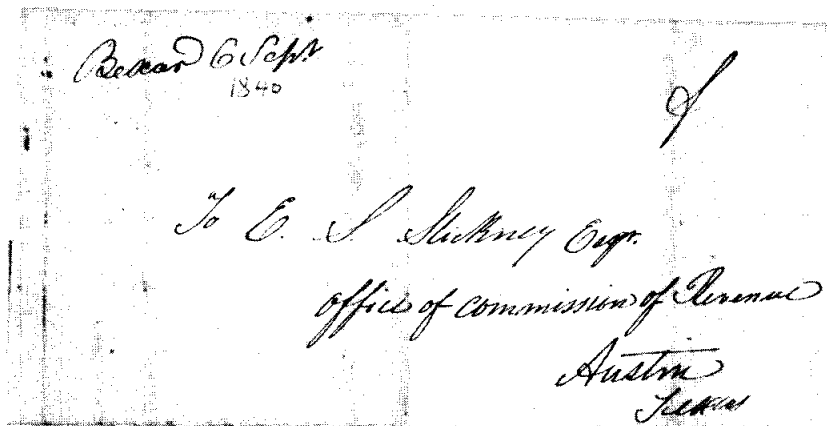 Bexar 6 Sept
1840
To E. S. Stickney Esqr.
office of commission of Revenue
Austin
Texas